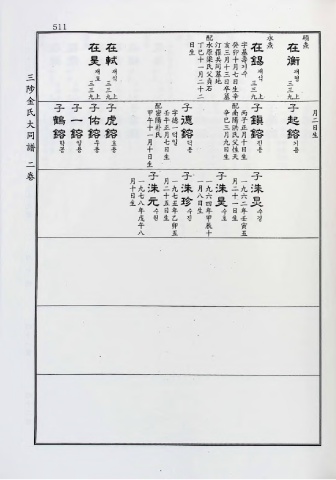 511
三陟金氏大同譜 二卷
碩壵
在衡 재형
三三九 上
永壵
在錫 재석
三三九 上
字基壽 기수
癸卯十月七日生辛
亥三月十三日卒墓
汀羅兵同墓地
配水原梁氏父貞石
丁巳十一月二十二
日生
在軾 재식
三三九 上
在旲 재호
三三九 上
月二日生
子 起鎔 기용
子 鎭鎔 진용
丙子正月十日生
配南陽洪氏父性天
辛巳三月九日生
子 德鎔 덕용
字德一 덕일
壬午正月七日生
配密陽朴氏
甲午十一月十日生
子 虎鎔 호용
子 佑鎔 우용
子 一鎔 일용
子 鶴鎔 학용
子 洙炅 수경
一九六二年壬寅五
月二十一日生
子 洙旲 수호
一九六四年甲辰十
一月八日生
子 洙珍 수진
一九七五年乙卯五
月二十五日生
子 洙元 수원
一九七八年戊午八
月十日生